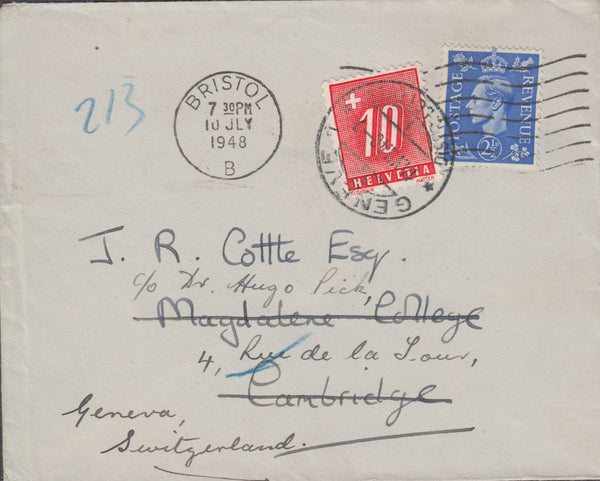 213
BRISTOL
7 30PM
10 JLY
1948
B
+
10
HELVETIA
GENEVE
POSTAGE REVENUE
2½D
J. R. Cottle Esq.
c/o Dr. Hugo Pick,
Magdalene College
4, Rue de la Tour,
Cambridge
Geneva,
Switzerland.